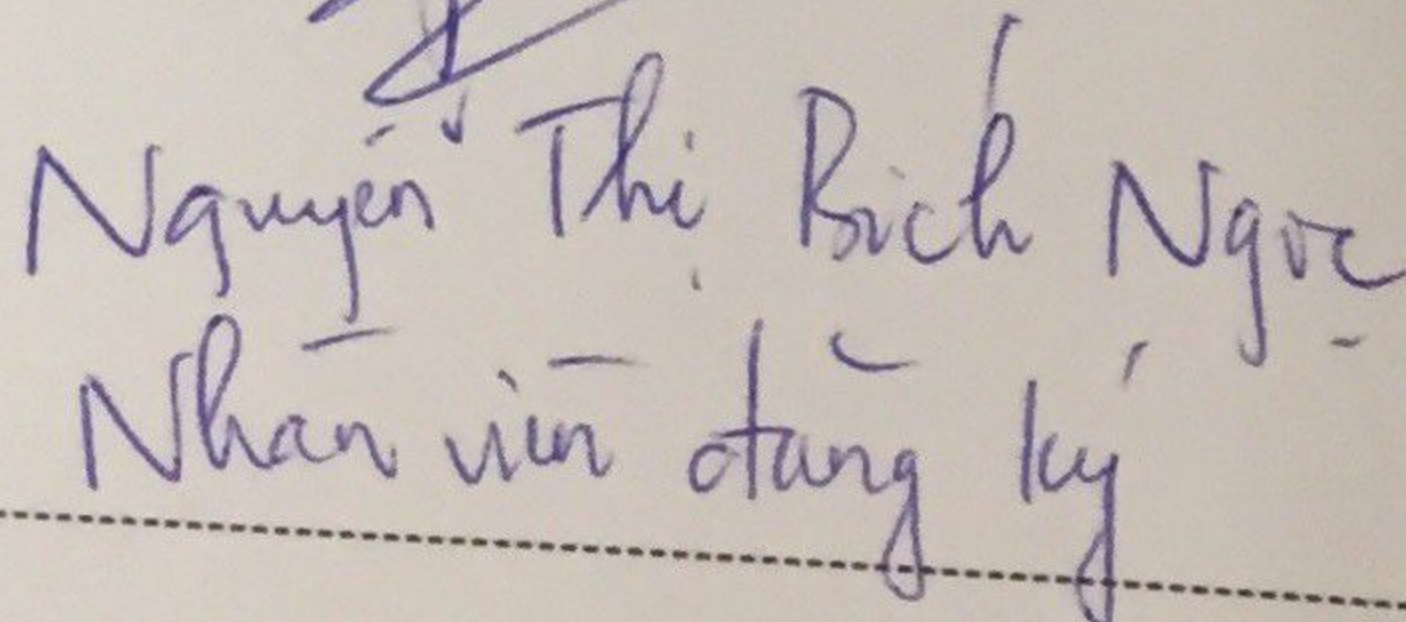 Nguyễn Thị Bích Ngọc
Nhân viên đăng ký